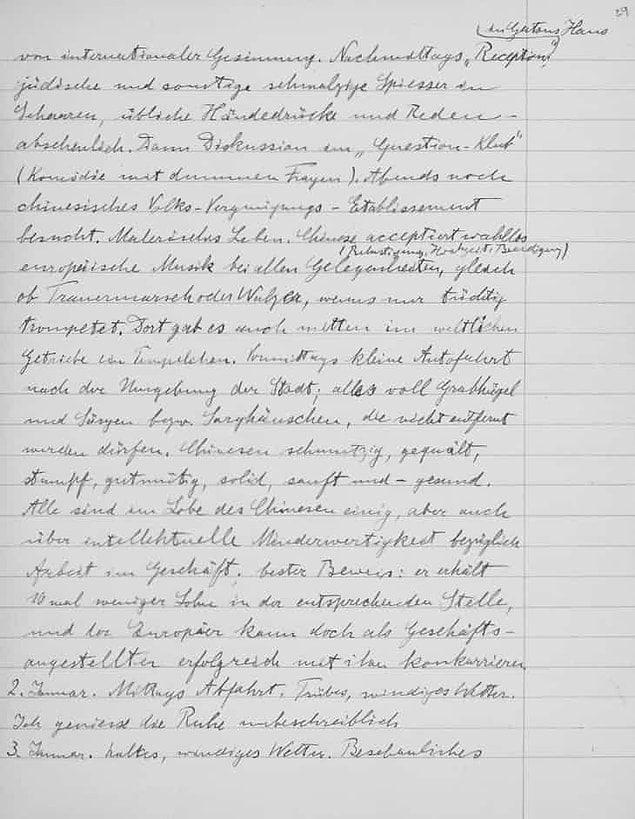 29
in Gatons Haus
von internationaler Gesinnung. Nachmittags „Reception"
jüdische und sonstige schmalzige Spiesser in
Scharen, übliche Händedrücke und Reden –
abscheulich. Dann Diskussion im „Question-Klub"
(Komödie mit dummen Fragen). Abends noch
chinesisches Volks-Vergnügungs-Etablissement
besucht. Malerisches Leben. Chinese acceptiert wahllos
(Belustigung, Hochzeit, Beerdigung)
europäische Musik bei allen Gelegenheiten, gleich
ob Trauermarsch oder Walzer, wenns nur tüchtig
trompetet. Dort gab es auch mitten im weltlichen
Getriebe ein Tempelchen. Vormittags kleine Autofahrt
nach der Umgebung der Stadt; alles voll Grabhügel
und Särgen bezw. Sarghäuschen, die nicht entfernt
werden dürfen. Chinesen schmutzig, gequält,
stumpf, gutmütig, solid, sanft und – gesund.
Alle sind im Lobe des Chinesen einig, aber auch
über intellektuelle Minderwertigkeit bezüglich
Arbeit im Geschäft; bester Beweis: er erhält
10 mal weniger Lohn in der entsprechenden Stelle,
und der Europäer kann doch als Geschäfts-
angestellter erfolgreich mit ihm konkurrieren
2. Januar. Mittags Abfahrt. Trübes, windiges Wetter.
Ich geniesse die Ruhe unbeschreiblich
3. Januar. kaltes, windiges Wetter. Beschauliches